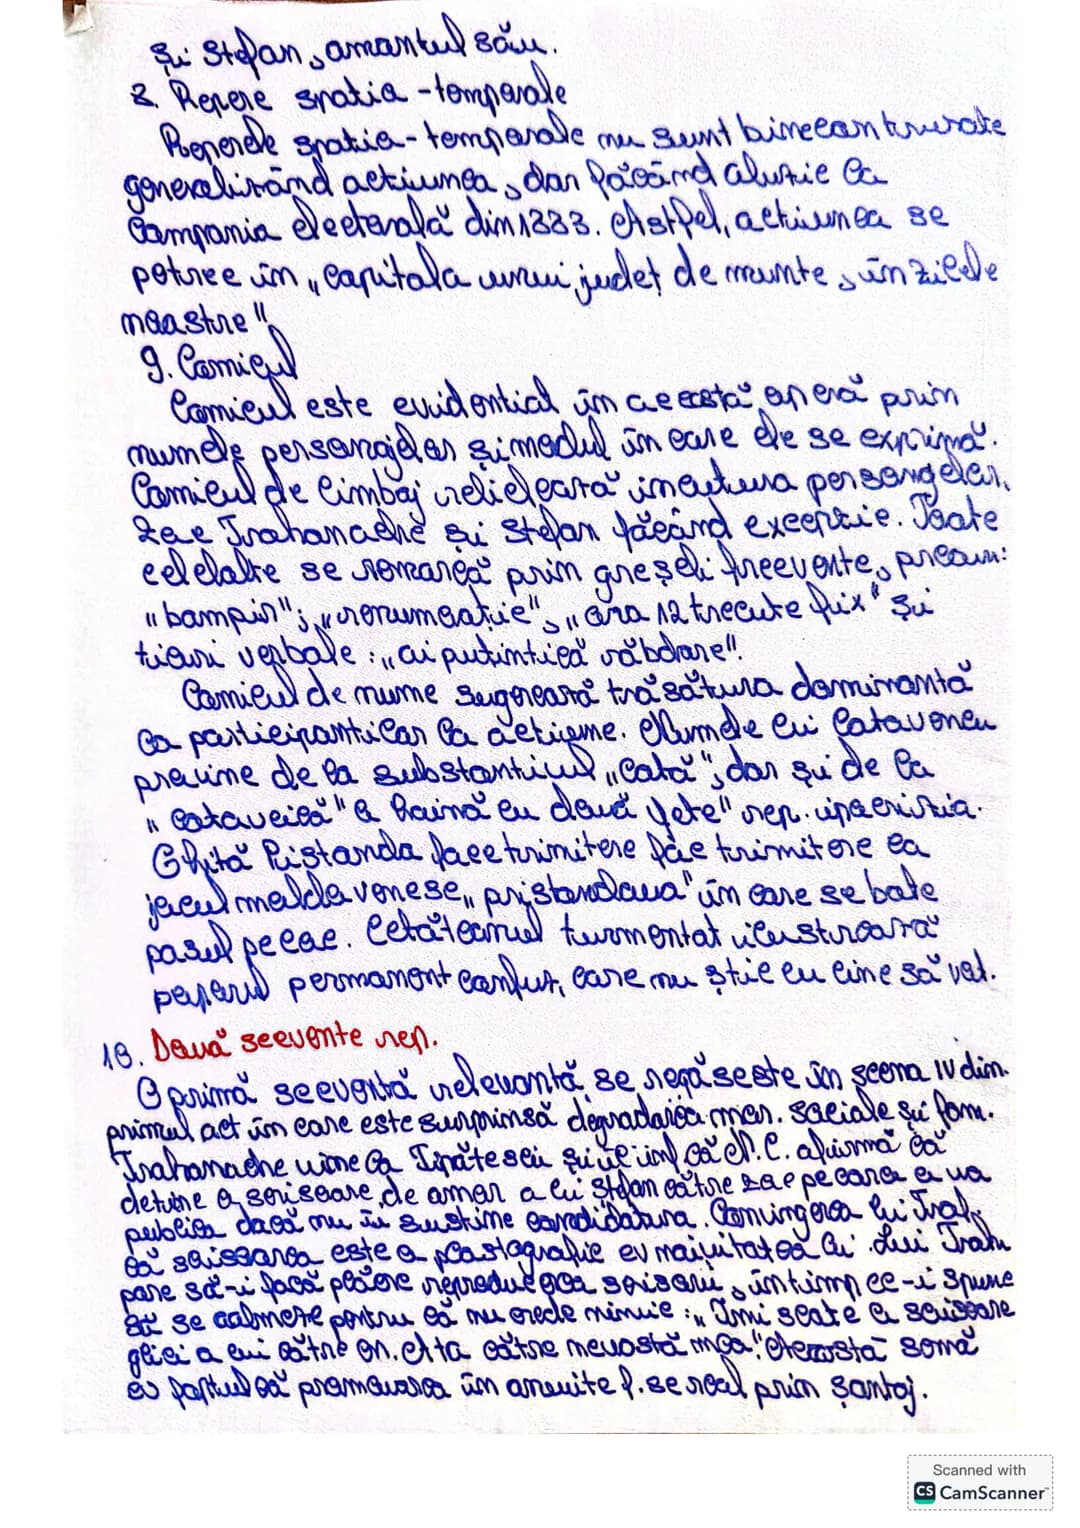 și Ștefan, amantul său.
8. Repere spatio-temporale
Reperele spatio-temporale nu sunt bineconturate
generalizând actiunea, dar făcând aluzie la
Campania electorală din 1883. Astfel, actiunea se
petrece în „capitala unui județ de munte, în zilele
noastre"
9. Comicul
Comicul este evidential în aceastā operă prin
numele personajelor și modul în care ele se exprimă.
Comicul de limbaj reliefează incultura personajelor,
Zoe Trahanache și Ștefan făcând excepție. Toate
celelalte se remarcă prin greșeli frecvente, precum:
"bampir"; „renumeație", „ora 12 trecute fix" și
ticuri verbale: „ai puțintică răbdare".
Comicul de nume sugerează trăsătura dominantă
a participantilor la actiune. Numele lui Catavencu
provine de la substantivul „cață", dar și de la
„cataveică" o haină cu două fețe" rep. ipocrizia.
Ghită Pristanda face trimitere face trimitere la
jocul moldovenesc „pristandaua" în care se bate
pasul pe loc. Cetățeanul turmentat ilustrează
poporul permanent confuz, care nu știe cu cine să vot.
10. Două secvente rep.
O primă secventă relevantă se regăseste în scena IV din
primul act în care este surprinsă degradarea mor. sociale și fam.
Trahanache vine la Tipătescu și îl inf. că N.C. afirmă că
detine o scrisoare de amor a lui Ștefan către Zoe pe care o va
publica dacă nu îi sustine candidatura. Convingerea lui Trah.
că scrisoarea este o plastografie ev naivitatea lui. Lui Trah
pare să-i facă plăcere reproducerea scrisorii, în timp ce-i spune
să se calmeze pentru că nu crede nimic: „Îmi scoate o scrisoare
glici a cui către on. Ata către nevostă mea". Această scenă
ev faptul că promovarea în anumite f. se real prin șantaj.
Scanned with
CS CamScanner